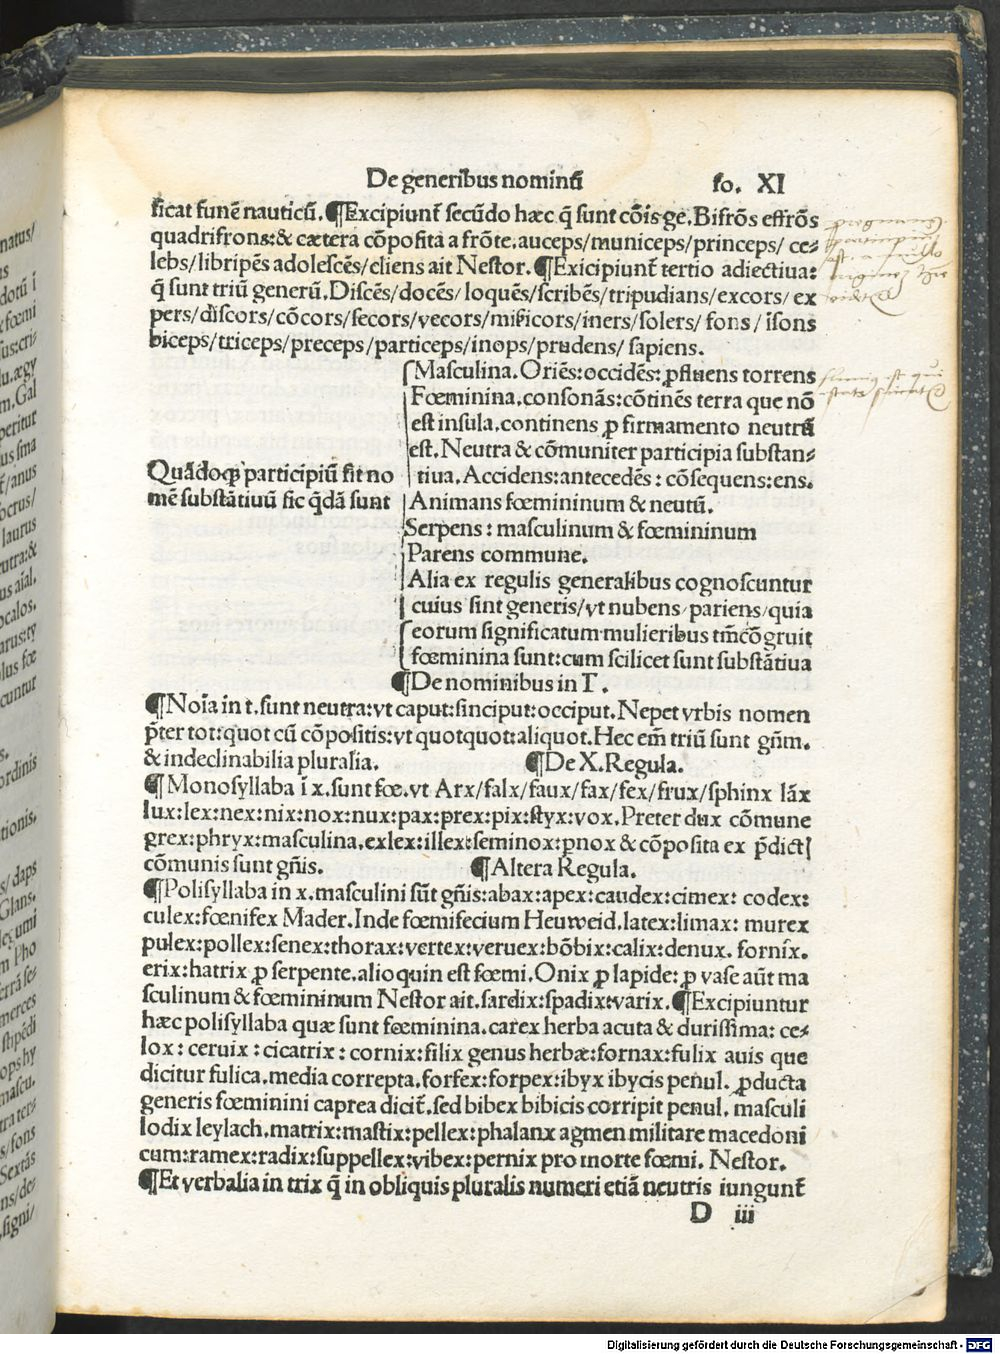 De generibus nominū fo. XI
ficat funē nauticū. ¶Excipiunt̃ secūdo hæc q̃ sunt cōis ge. Bifrōs effrōs
quadrifrons:& cætera cōposita a frōte.auceps/municeps/princeps/ ce-
lebs/libripēs adolescēs/cliens ait Nestor. ¶Exicipiunt̃ tertio adiectiua:
q̃ sunt triū generū. Discēs/docēs/ loquēs/scribēs/tripudians/excors/ ex
pers/discors/cōcors/secors/vecors/misicors/iners/solers/ fons/ isons
biceps/triceps/preceps/particeps/inops/prudens/ sapiens.
Quãdoqꝫ participiū fit no
mē substātiuū sic q̃dā sunt
Masculina. Oriēs:occidēs: ꝓfluens torrens
Fœminina.consonās:cōtinēs terra que nō
est insula.continens ꝓ firmamento neutrū
est. Neutra & cōmuniter participia substan-
tiua. Accidens:antecedēs: cōsequens:ens.
Animans fœmininum & neutū.
Serpens: masculinum & fœmininum
Parens commune.
Alia ex regulis generalibus cognoscuntur
cuius sint generis/vt nubens/pariens/quia
eorum significatum mulieribus tm̃cōgruit
fœminina sunt:cum scilicet sunt substātiua
¶De nominibus in T.
¶Noīa in t.sunt neutra:vt caput:sinciput:occiput. Nepet vrbis nomen
p̃ter tot:quot cū cōpositis:vt quotquot:aliquot. Hec em̃ triū sunt gñm.
& indeclinabilia pluralia. ¶De X. Regula.
¶Monosyllaba ī x.sunt fœ.vt Arx/falx/faux/fax/fex/frux/sphinx lāx
lux:lex:nex:nix:nox:nux:pax:prex:pix:styx:vox. Preter dux cōmune
grex:phryx:masculina.exlex:illex:seminox:ꝑnox & cōposita ex p̃dict
cōmunis sunt gñis. ¶Altera Regula.
¶Polisyllaba in x.masculini sūt gñis:abax:apex:caudex:cimex: codex:
culex:fœnisex Mader. Inde fœnisecium Heuweid.latex:limax: murex
pulex:pollex:senex:thorax:vertex:veruex:bōbix:calix:denux. fornix.
erix:hatrix ꝓ serpente.alioquin est fœmi. Onix ꝓ lapide: ꝓ vase aūt ma
sculinum & fœmininum Nestor ait.sardix:spadix:varix. ¶Excipiuntur
hæc polisyllaba quæ sunt fœminina.carex herba acuta & durissima: ce-
lox: ceruix: cicatrix: cornix:filix genus herbæ:fornax:fulix auis que
dicitur fulica.media correpta.forfex:forpex:ibyx ibycis penul. ꝓducta
generis fœminini caprea dicit̃.sed bibex bibicis corripit penul. masculi
lodix leylach.matrix:mastix:pellex:phalanx agmen militare macedoni
cum:ramex:radix:suppellex:vibex:pernix pro morte fœmi. Nestor.
¶Et verbalia in trix q̃ in obliquis pluralis numeri etiā neutris iungunt̃
D iii
Digitalisierung gefördert durch die Deutsche Forschungsgemeinschaft - DFG